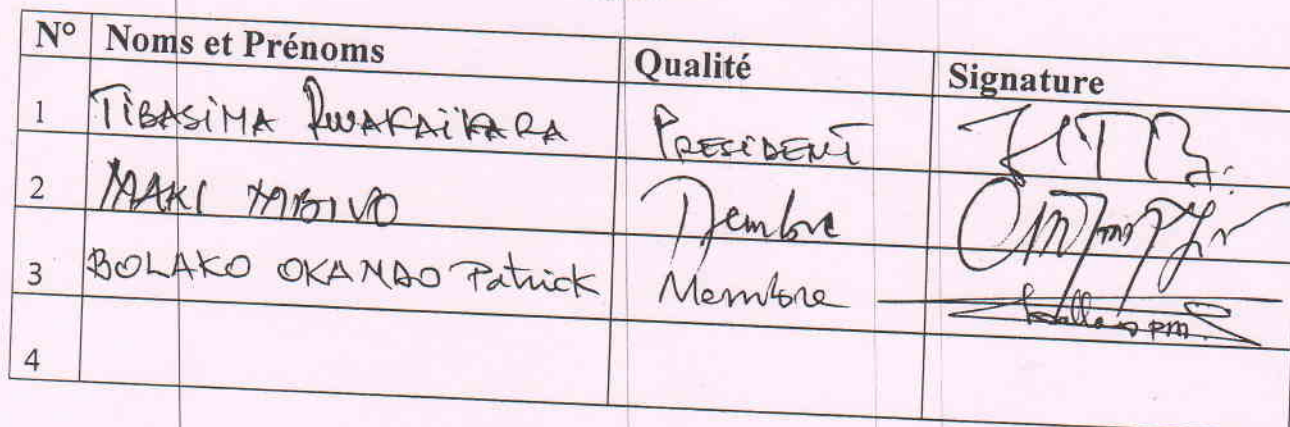 N° Noms et Prénoms Qualité Signature
1 TIBASIMA RWAKAÏKARA PRESIDENT
2 MAKI Membre
3 BOLAKO OKANDO Patrick Membre
4